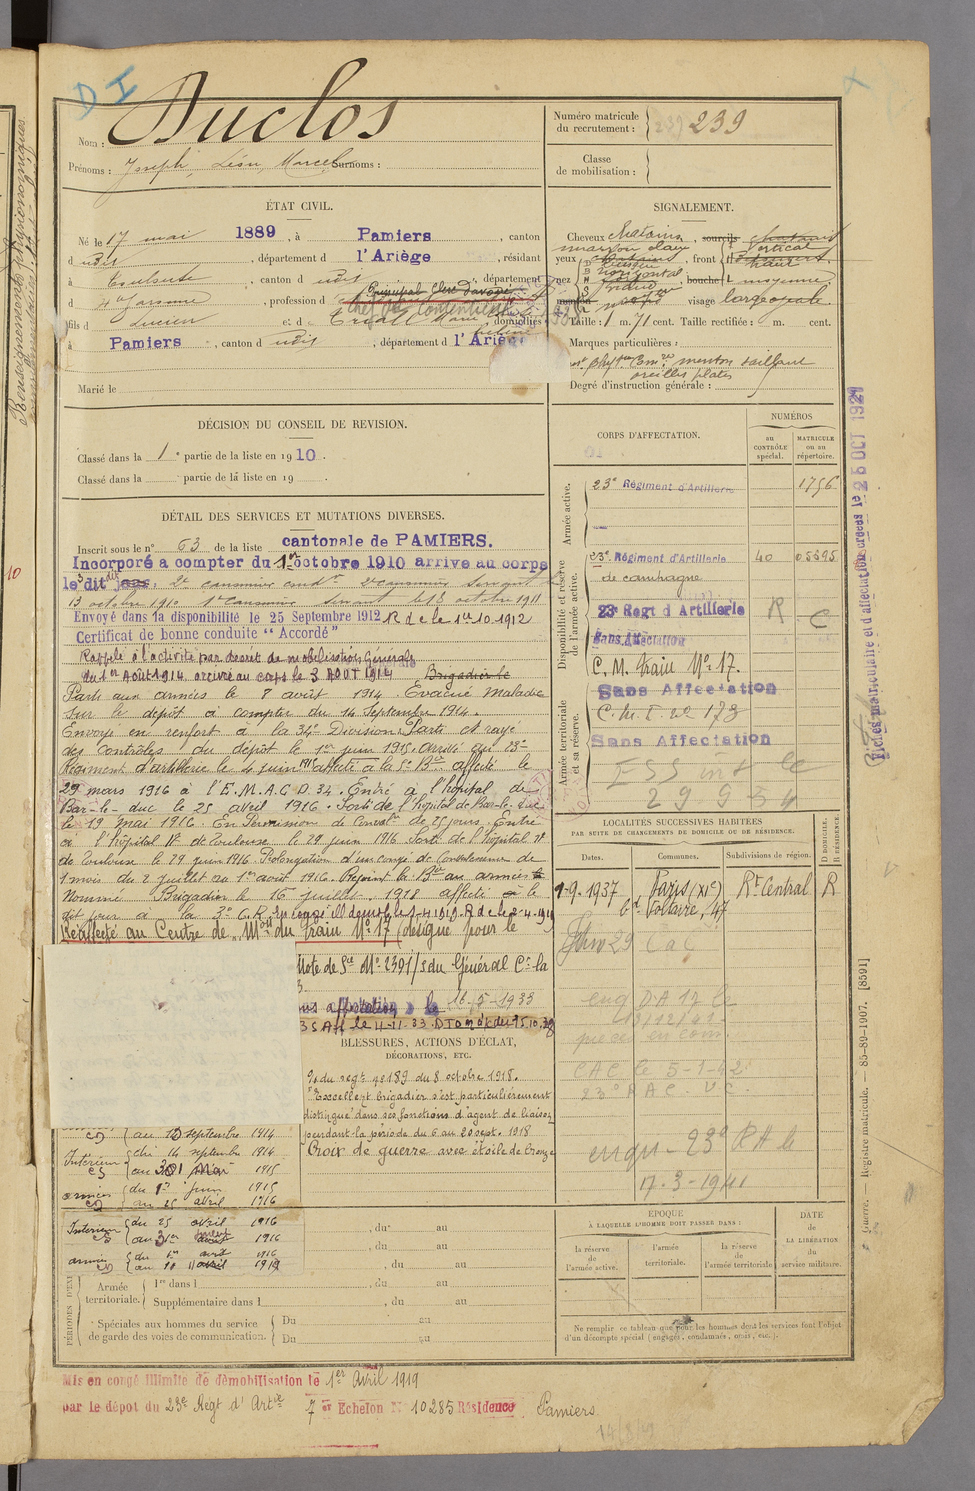 DI
Nom : Duclos
Prénoms : Joseph, Léon, Marcel Surnoms :
Numéro matricule du recrutement : 239
Classe de mobilisation :
ÉTAT CIVIL.
Né le 17 mai 1889, à Pamiers, canton
d udit, département d l'Ariège, résidant
à Toulouse, canton d udit, département
d Hte Garonne, profession d
fils d Lucien et d Marie domiciliés
à Pamiers, canton d udit, département d l'Ariège
Marié le
SIGNALEMENT.
Cheveux châtains, sourcils châtains
marron clair vertical
yeux, front
nez horizontal bouche moyenne
visage large
Taille : 1 m. 71 cent. Taille rectifiée : m. cent.
Marques particulières :
menton saillant
oreilles plates
Degré d'instruction générale :
DÉCISION DU CONSEIL DE REVISION.
Classé dans la 1e partie de la liste en 1910.
Classé dans la partie de la liste en 19 .
DÉTAIL DES SERVICES ET MUTATIONS DIVERSES.
Inscrit sous le n° 63 de la liste cantonale de PAMIERS.
Incorporé a compter du 1er octobre 1910 arrive au corps
le dit jour, 2e canonnier condr 2e canonnier servant le
13 octobre 1910 1er canonnier servant le 13 octobre 1911
Envoyé dans la disponibilité le 25 Septembre 1912 R d e le 1er 10.1912
Certificat de bonne conduite "Accordé"
Rappelé à l'activité par décret de mobilisation Générale
du 1er Août 1914, arrivé au corps le 3 AOUT 1914 Brigadier le
Parti aux armées le 8 août 1914. Evacué Maladie
sur le dépôt à compter du 14 Septembre 1914.
Envoyé en renfort à la 34e Division. Parti et rayé
des contrôles du dépôt le 1er juin 1915. Arrivé au 23e
Régiment d'artillerie le 4 juin 1915 affecté à la 5e Bie affecté le
29 mars 1916 à l'E.M.A.C D. 34. Entré à l'hôpital de
Bar-le-duc le 25 avril 1916. Sorti de l'hôpital de Bar-le-Duc
le 19 mai 1916. En Permission de Convalce de 25 jours. Entré
à l'hôpital Nt de Toulouse le 29 juin 1916. Sorti de l'hôpital Nt
de Toulouse le 29 juin 1916. Prolongation d'un congé de Convalescence de
1 mois du 2 juillet au 1er août 1916. Rejoint la Bie aux armées le
Nommé Brigadier le 16 juillet 1918 affecté à le
dit jour à la 3e C.R. En congé ill démob le 1-4-1919. R de le 2-4-1919
Réaffecté au Centre de Mon du Train N° 17 (désigné pour le
Note de Sce N° 2391/S du Général Ct la
Sans affectation le 16-5-1933
Armée active.
Disponibilité et réserve de l'armée active.
Armée territoriale et sa réserve.
CORPS D'AFFECTATION.
NUMÉROS
au CONTRÔLE spécial.
MATRICULE ou au répertoire.
23e Régiment d'Artillerie 1756
23e Régiment d'Artillerie 40 05395
de campagne
23e Regt d'Artillerie R C
Sans Affectation
C. M. Train N° 17.
Sans Affectation
C. M. T. N° 173
Sans Affectation
LOCALITÉS SUCCESSIVES HABITÉES
PAR SUITE DE CHANGEMENTS DE DOMICILE OU DE RÉSIDENCE.
Dates. Communes. Subdivisions de région. D DOMICILE. R RÉSIDENCE.
1-9-1937 Paris (XIe) Rt Central R
bd Voltaire, 47
eng DA 17 le
13/12/41
pieces en com.
CAC le 5-1-42
23e RAC. VC
23e RA le
17-3-1941
BLESSURES, ACTIONS D'ÉCLAT,
DÉCORATIONS, ETC.
O/ du regt n° 189 du 8 octobre 1918.
"Excellent brigadier s'est particulièrement
distingué dans ses fonctions d'agent de liaison
pendant la période du 6 au 20 sept. 1918
Croix de guerre avec étoile de bronze
au 13 septembre 1914
Intérieur CS du 14 septembre 1914
au 31 Mai 1915
armées du 1er juin 1915
au 25 avril 1916
Intérieur CS du 25 avril 1916
au 31 1916
armées du 1er août 1916
au 1919
, du au
, du au
, du au
PÉRIODES D'EX
Armée territoriale.
1re dans l , du au
Supplémentaire dans l , du au
Spéciales aux hommes du service de garde des voies de communication.
Du au
Du au
ÉPOQUE
À LAQUELLE L'HOMME DOIT PASSER DANS :
la réserve de l'armée active.
l'armée territoriale.
la réserve de l'armée territoriale
DATE de LA LIBÉRATION du service militaire.
Ne remplir ce tableau que pour les hommes dont les services font l'objet
d'un décompte spécial (engagés, condamnés, omis, etc.).
Mis en congé illimité de démobilisation le 1er Avril 1919
par le dépôt du 23e Régt d'Artie 7e Echelon N° 10285 Résidence Pamiers
Fiches matriculaire et d'affectation créées le 25 OCT 1921
Guerre. — Registre matricule. — 85-89-1907. [8591]
Renseignements physionomiques
10